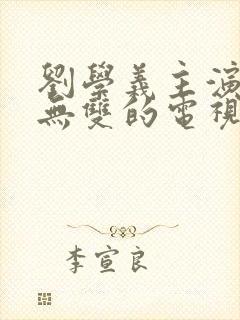 劉學義主演
無雙的電視
李宣良